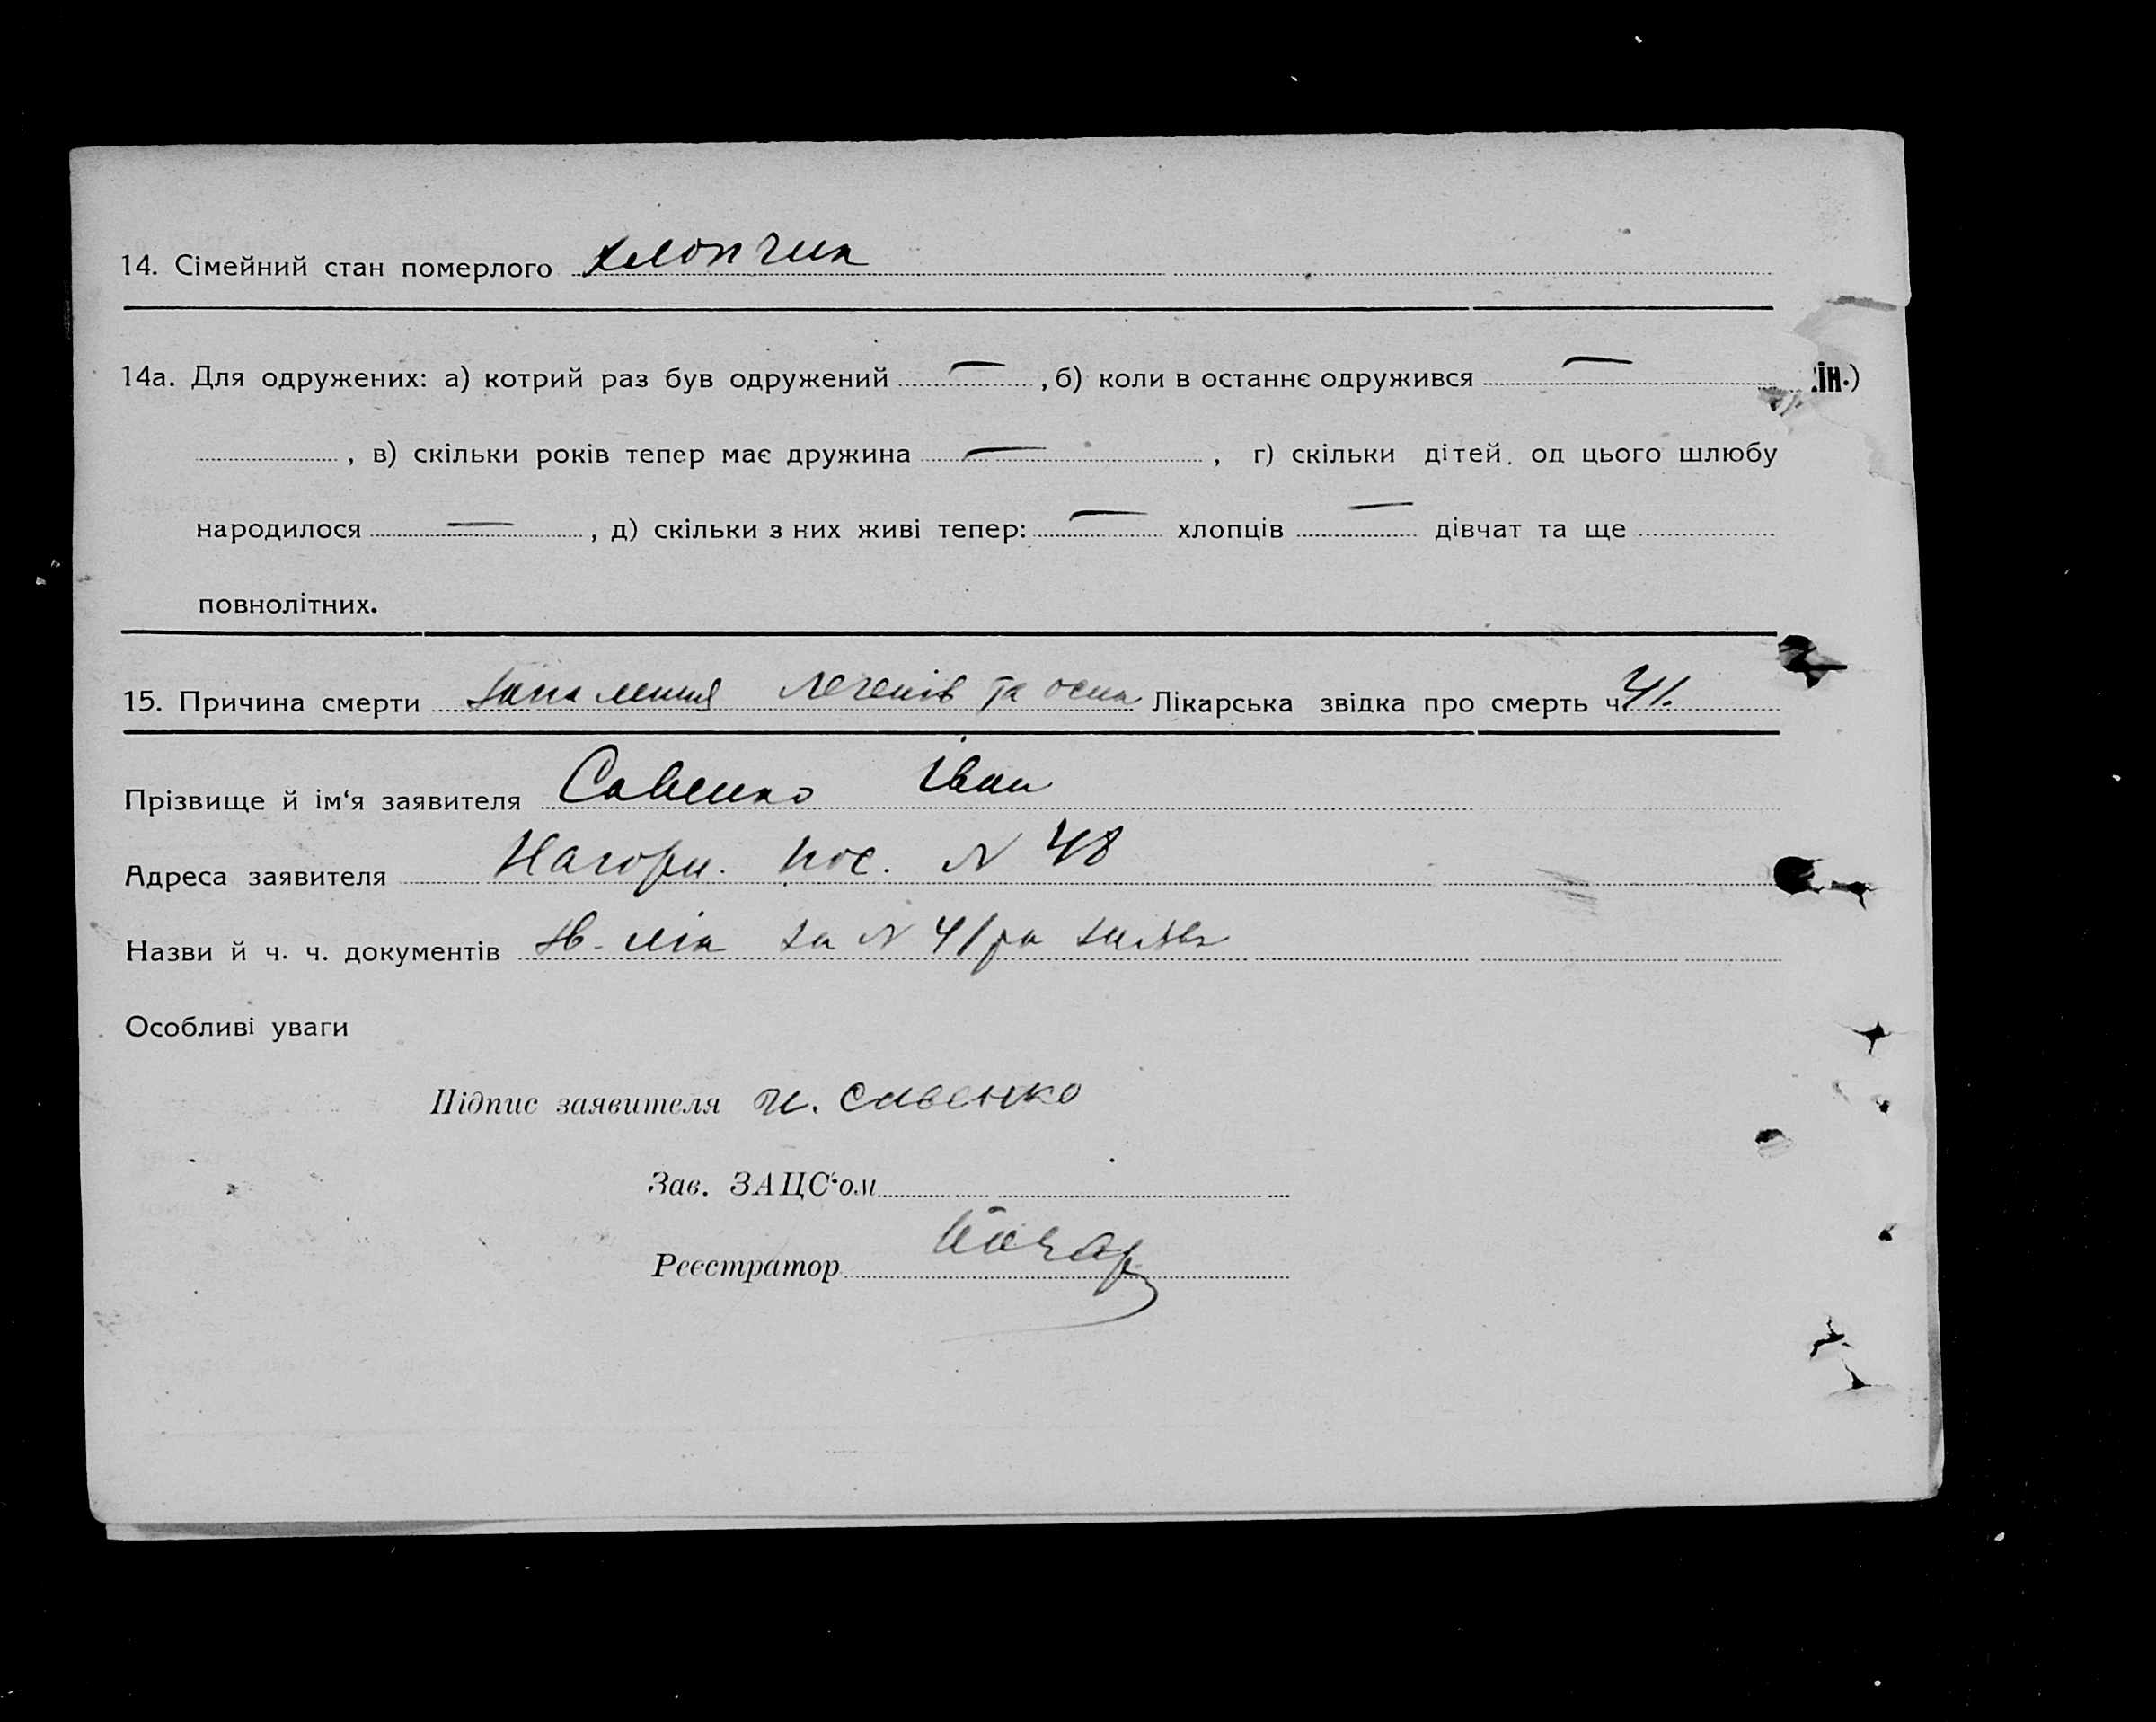 14. Сімейний стан померлого хлопчик
14а. Для одружених: а) котрий раз був одружений — , б) коли в останнє одружився —
ін.)
, в) скільки років тепер має дружина — , г) скільки дітей од цього шлюбу
народилося — , д) скільки з них живі тепер: — хлопців — дівчат та ще
повнолітних.
15. Причина смерти запалення легенів та оспа Лікарська звідка про смерть ч. 41.
Прізвище й ім‘я заявителя Савенко Іван
Адреса заявителя Нагорн. пос. N 48
Назви й ч. ч. документів зв. лік за N 41 та заява
Особливі уваги
Підпис заявителя И. Савенко
Зав. ЗАЦС‘ом
Реєстратор